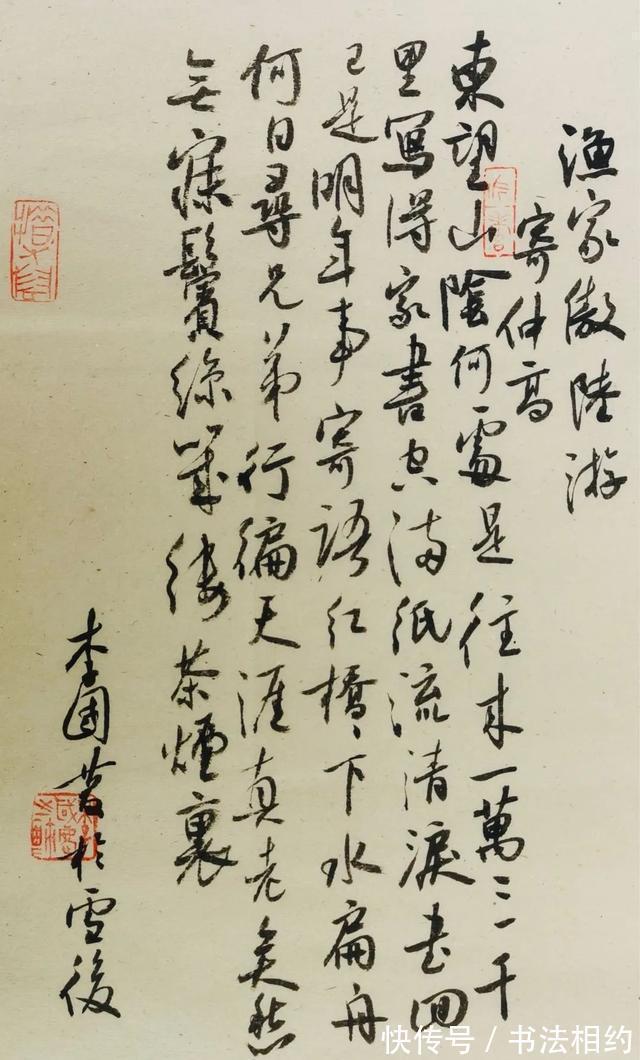 漁家傲陸游
寄仲高
東望山陰何處是往来一萬三千
里寫得家書空滿紙流清淚書回
已是明年事寄語紅橋橋下水扁舟
何日尋兄弟行徧天涯真老矣愁
無寐鬢絲幾縷茶煙裏
李國於雪後
快传号 / 书法相约